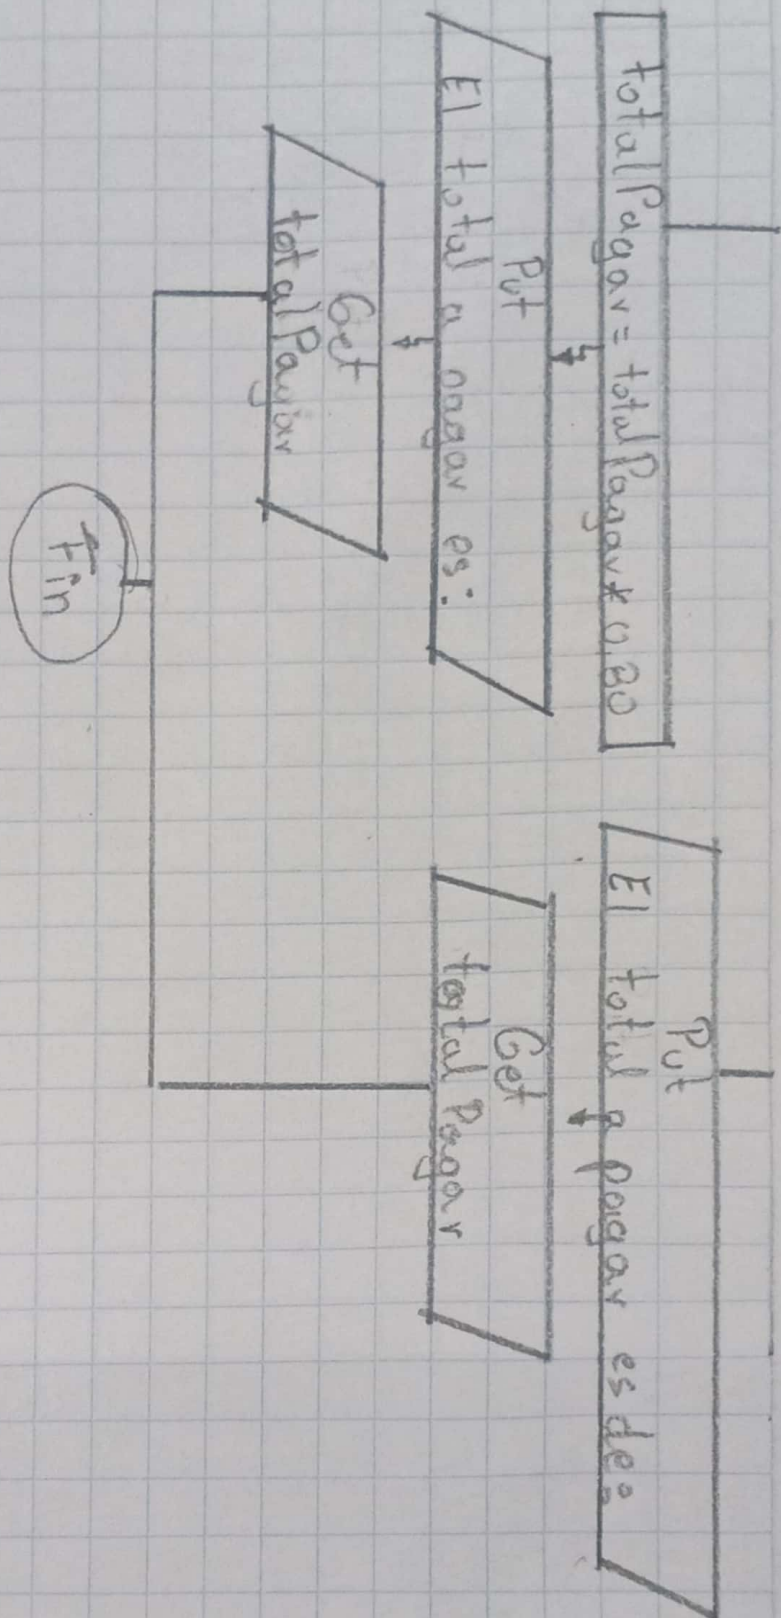 totalPagar = totalPagar * 0.80
Put
El total a pagar es:
Get
totalPagar
Put
El total a pagar es de:
Get
totalPagar
Fin